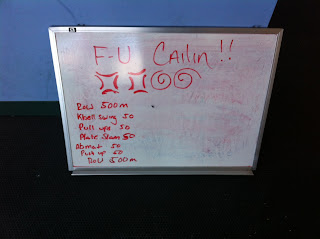 F-U CAilin!!
Row 500m
KBell Swing 50
Pull ups 50
Plate Slams 50
Abmat 50
Push up 50
Row 500m